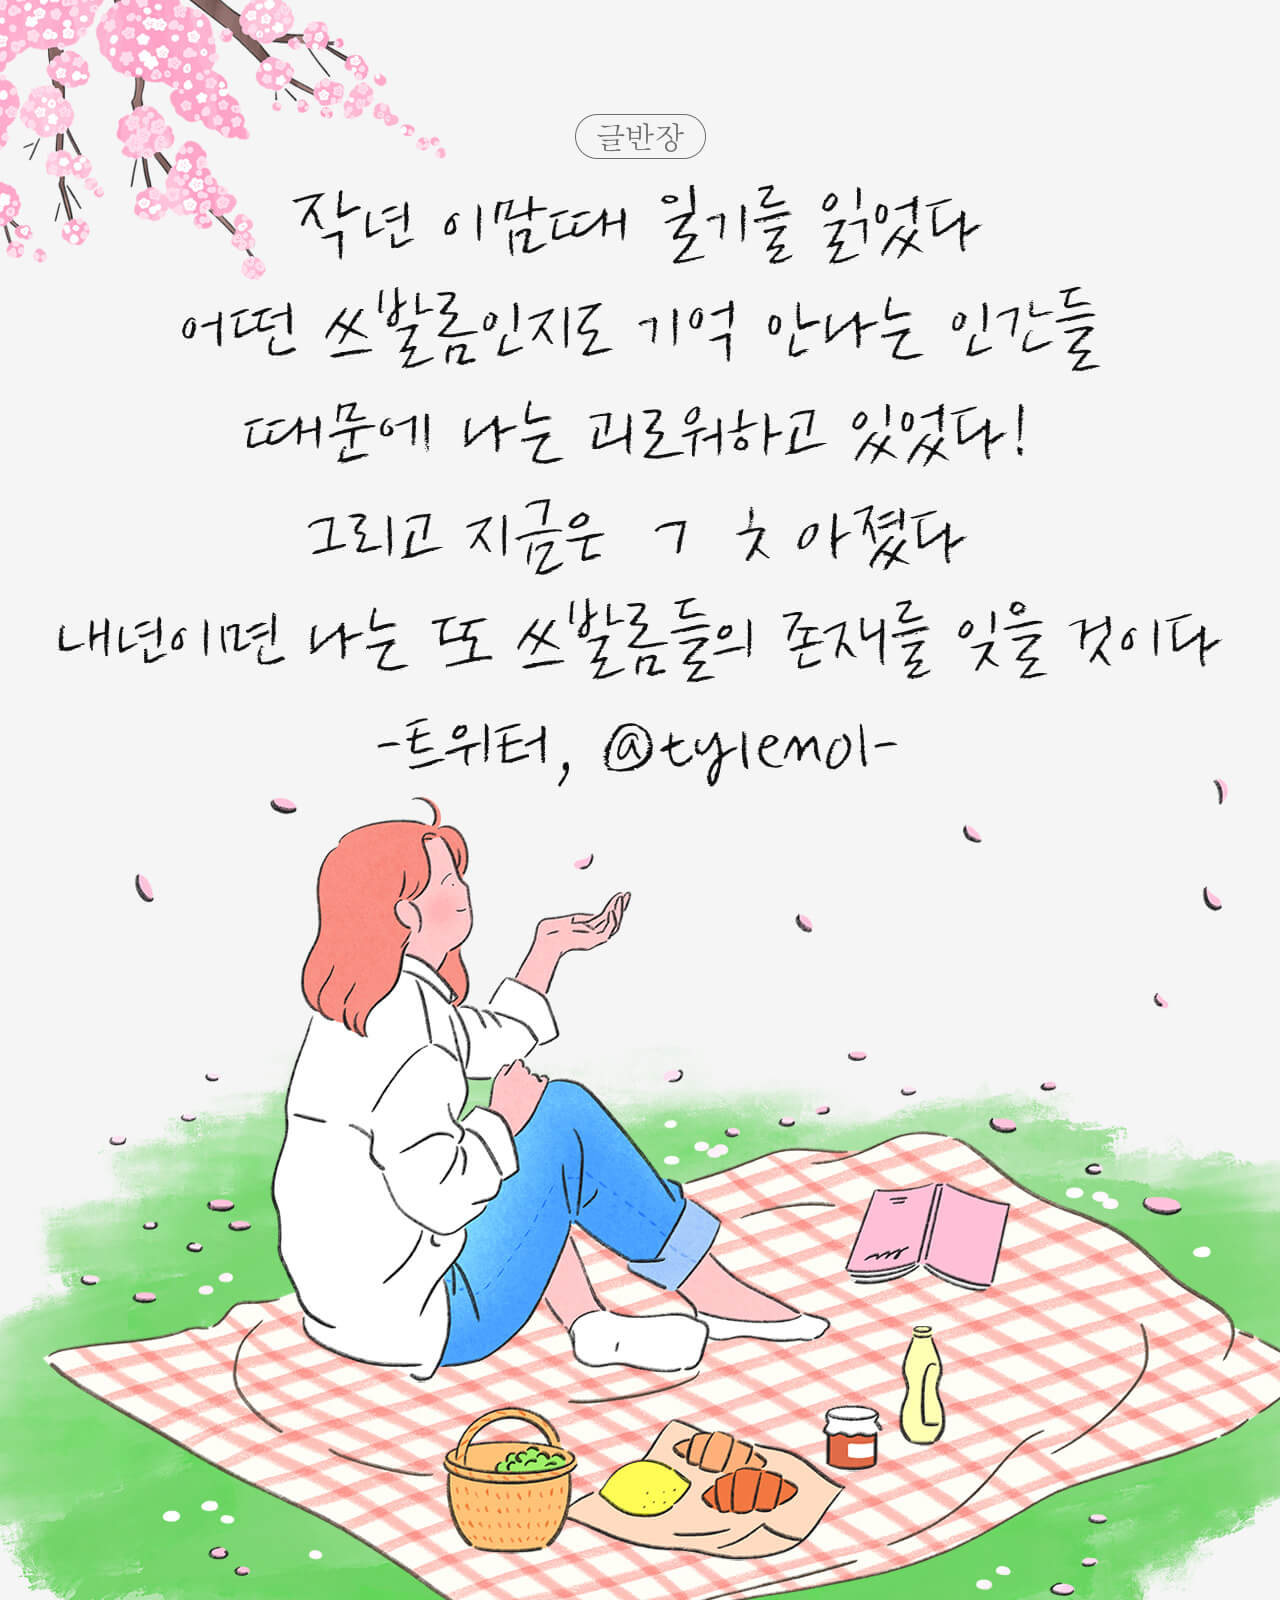 글반장
작년 이맘때 일기를 읽었다
어떤 쓰발롬인지도 기억 안나는 인간들
때문에 나는 괴로워하고 있었다!
그리고 지금은 ㄱ ㅊ 아졌다
내년이면 나는 또 쓰발롬들의 존재를 잊을 것이다
-트위터, @tylenol-